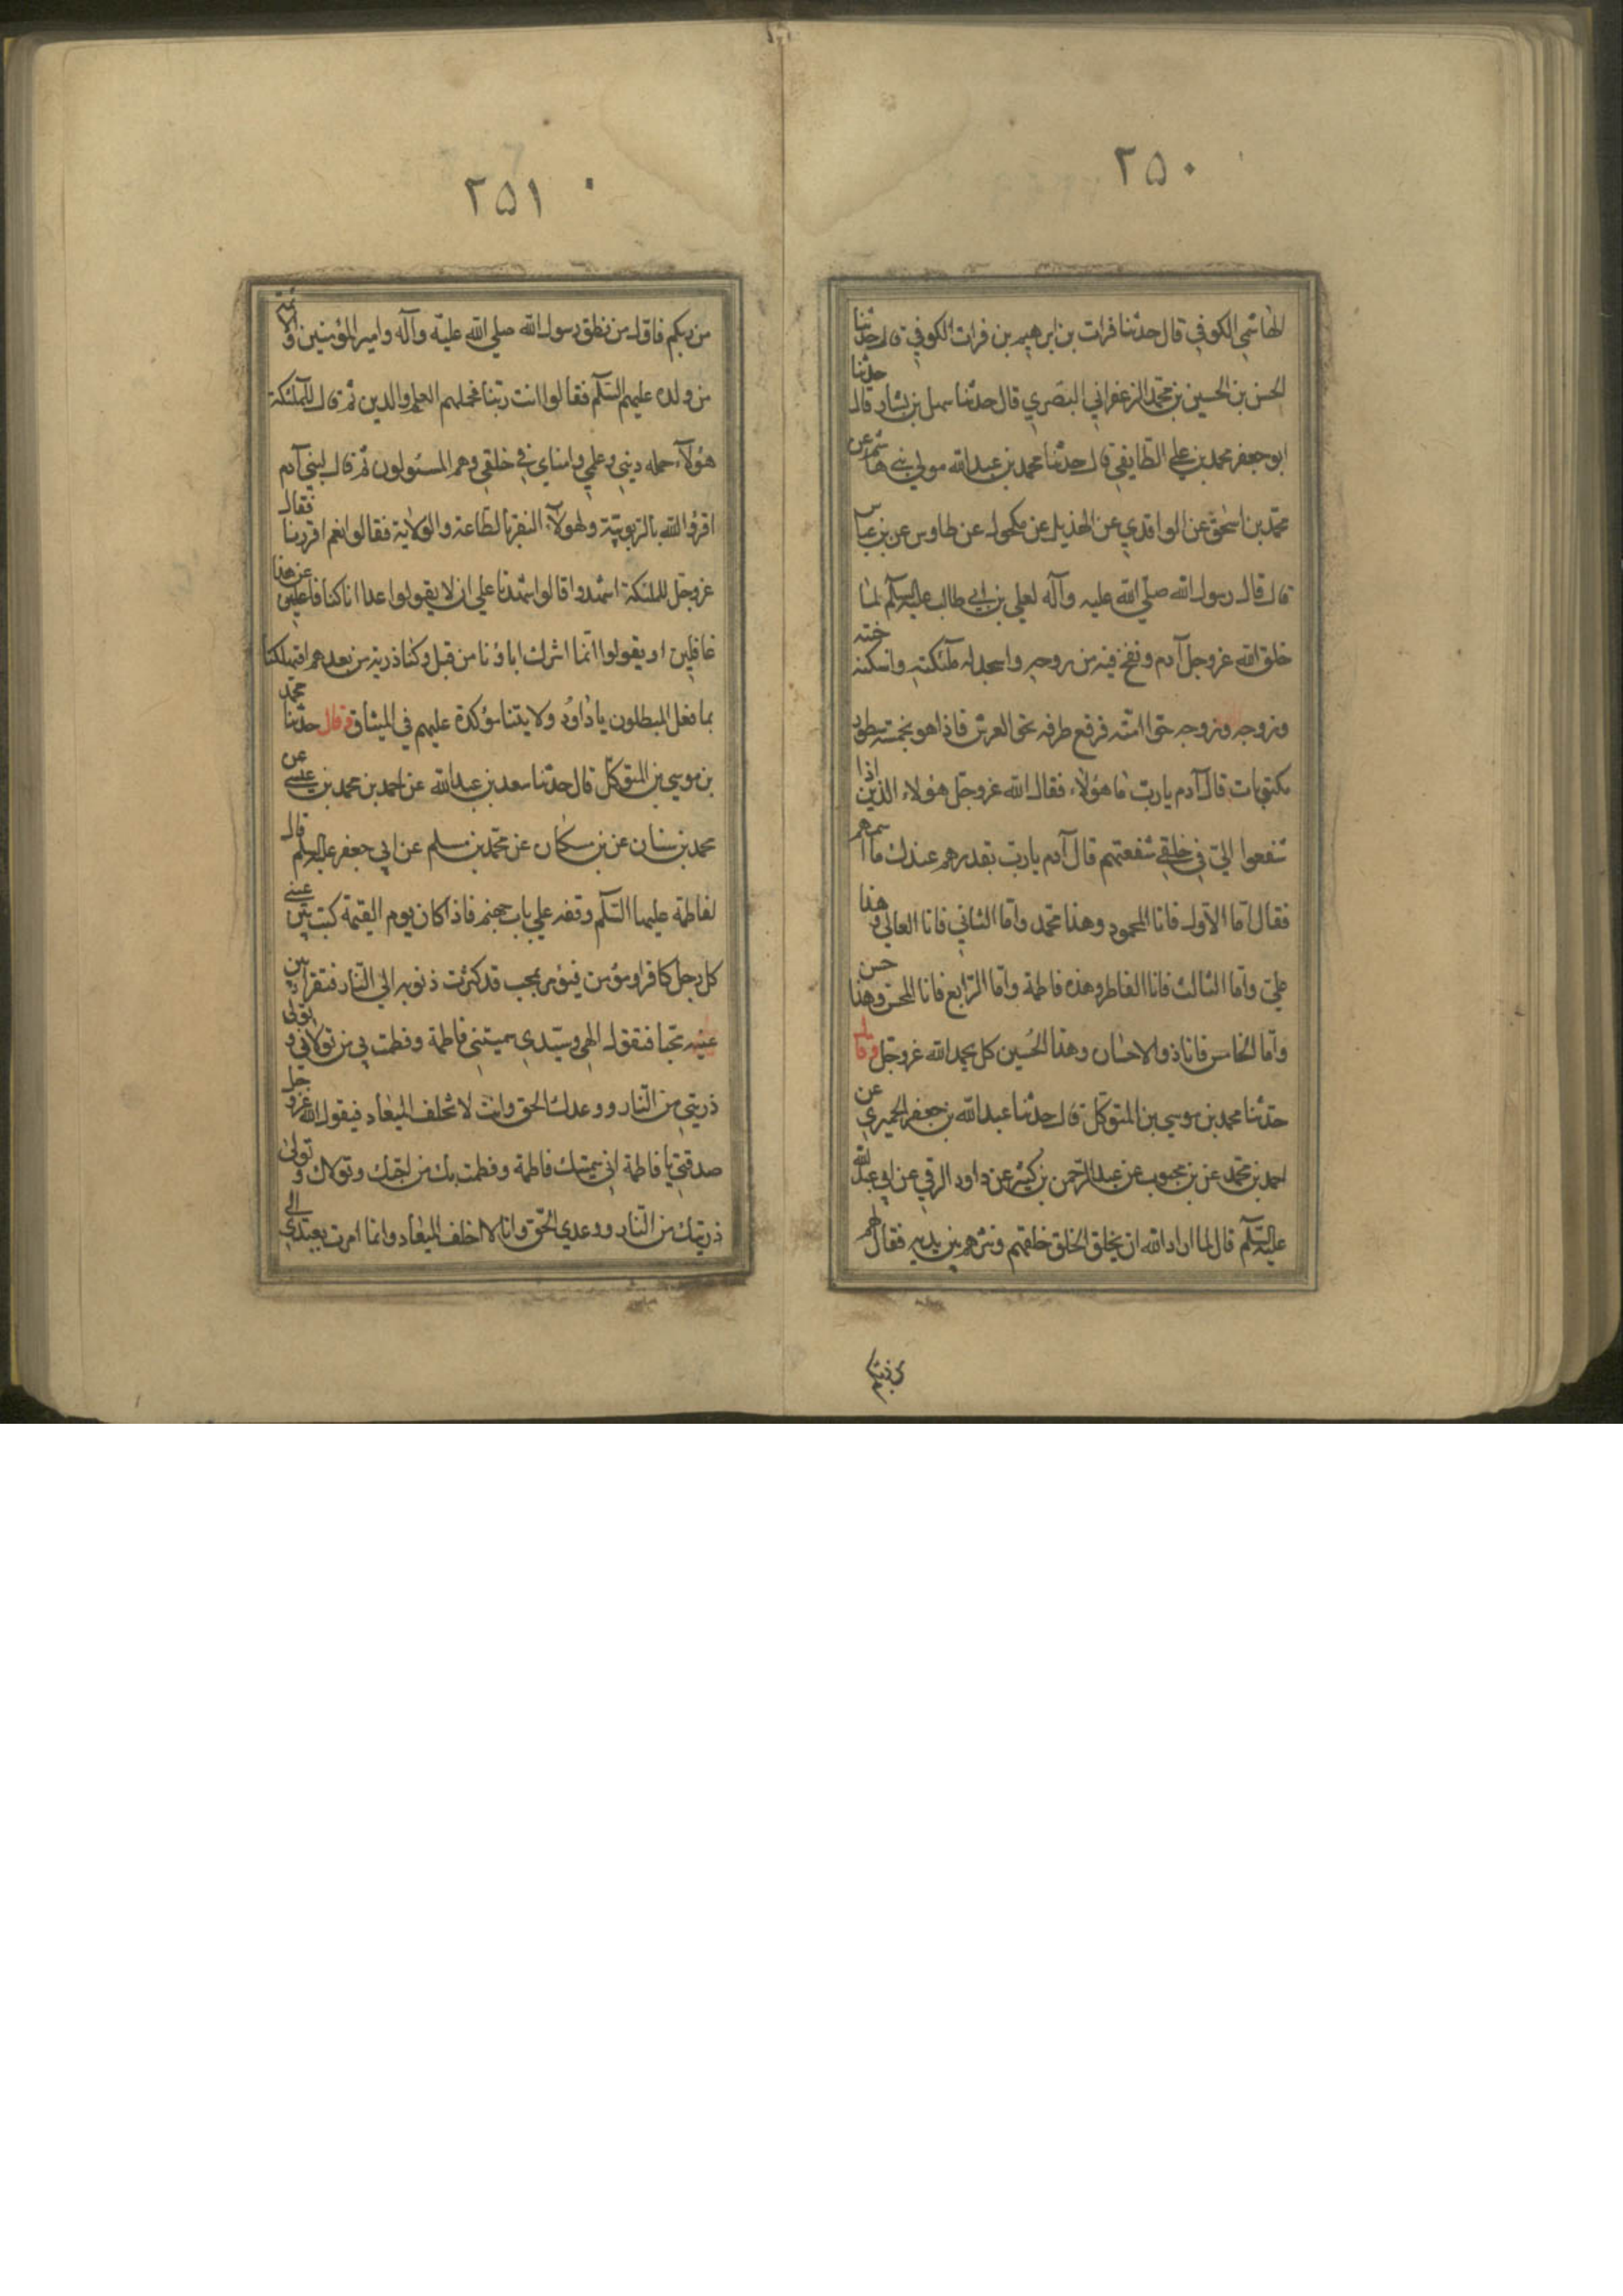 ٢٥٠
الهاشمي الكوفي قال حدثنا فرات بن ابرهيم بن فرات الكوفي قال حدثنا
الحسن بن الحسين بن محمد الزعفراني البصري قال حدثنا سهل بن بشار قال حدثنا
ابو جعفر محمد بن علي الطايفي قال حدثنا محمد بن عبد الله مولي بني هاشم عن
محمد بن اسحق عن الواقدي عن الهذيل عن مكحول عن طاوس عن بن عباس
قال قال رسول الله صلي الله عليه وآله لعلي بن ابي طالب عليه السلم لما
خلق الله عز وجل آدم ونفخ فيه من روحه واسجد له ملئكته واسكنه جنته
وزوجه حتا امته فرفع طرفه نحي العرش فاذا هو بخمسة سطور
مكتوبات قال آدم يا رب ما هؤلاء فقال الله عز وجل هؤلاء الذين اذا
شفعوا اليّ في خلقي شفعتهم قال آدم يا رب بقدرهم عندك ما اسمهم
فقال اما الاول فانا المحمود وهذا محمد واما الثاني فانا العالي وهذا
علي واما الثالث فانا الفاطر وهذه فاطمة واما الرابع فانا المحسن وهذا حسن
واما الخامس فانا ذو الاحسان وهذا الحسين كل يحمد الله عز وجل وقال
حدثنا محمد بن موسي بن المتوكل قال حدثنا عبد الله بن جعفر الحميري عن
احمد بن محمد عن بن محبوب عن عبد الرحمن بن كثير عن داود الرقي عن ابي عبد الله
عليه السلم قال لما اراد الله ان يخلق الخلق خلقهم ونثرهم بين يديه فقال لهم
من ربكم
٢٥١
من ربكم فاول من نطق رسول الله صلي الله عليه وآله وامير المؤمنين والائمة
من ولده عليهم السلم فقالوا انت ربنا فحملهم العلم والدين ثم قال للملئكة
هؤلآء حمله ديني وعلمي وامناي في خلقي وهم المسئولون ثم قال لبني آدم
اقروا لله بالربوبية ولهولآء النفر بالطاعة والولاية فقالوا نعم اقررنا فقال
عز وجل للملئكة اشهدوا قالوا شهدنا علي ان لا يقولوا غدا انا كنا عن هذا
غافلين او يقولوا انما اشرك اباؤنا من قبل وكنا ذرية من بعدهم افتهلكنا
بما فعل المبطلون يا داود ولايتنا مؤكدة عليهم في الميثاق وقال حدثنا محمد
بن موسي بن المتوكل قال حدثنا سعد بن عبد الله عن احمد بن محمد بن عيسي عن
محمد بن سنان عن بن مسكان عن محمد بن مسلم عن ابي جعفر عليه السلم قال
لفاطمة عليها السلم وقفه علي باب جهنم فاذا كان يوم القيمة كتب بين عيني
كل رجل كافر او مؤمن فيؤمر بمحب قد كثرت ذنوبه الي النار فتقرا بين
عينيه محبا فتقول الهي وسيدي سميتني فاطمة وفطمت بي من تولاني وتولي
ذريتي من النار ووعدك الحق وانت لا تخلف الميعاد فيقول الله عز وجل
صدقتي يا فاطمة اني سميتك فاطمة وفطمت بك من احبك وتولاك وتولي
ذريتك من النار ووعدي الحق وانا لا اخلف الميعاد وانما امرت بعبدي الي